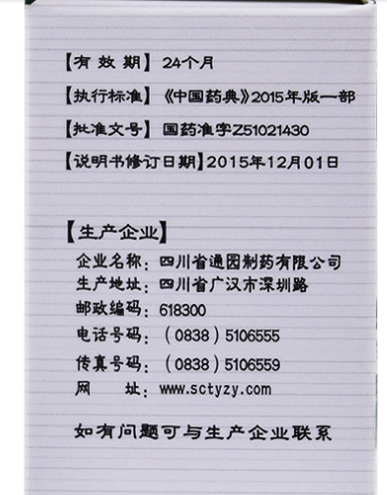 【有 效 期】 24个月
【执行标准】《中国药典》2015年版一部
【批准文号】 国药准字Z51021430
【说明书修订日期】2015年12月01日
【生产企业】
企业名称：四川省通园制药有限公司
生产地址：四川省广汉市深圳路
邮政编码：618300
电话号码：（0838）5106555
传真号码：（0838）5106559
网　　址：www.sctyzy.com
如有问题可与生产企业联系